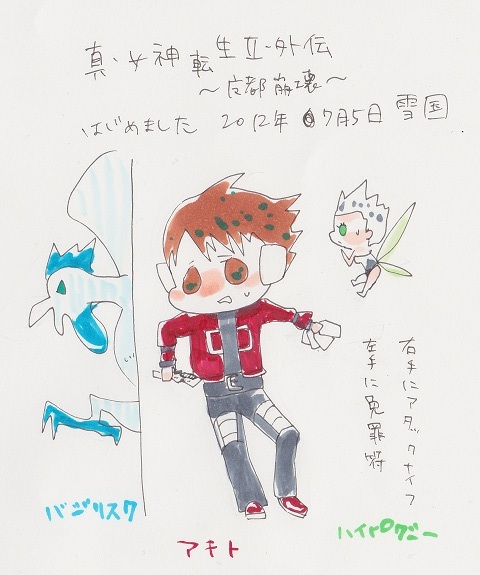 真・女神転生Ⅱ・外伝
～亡都崩壊～
はじめました 2012年7月5日 雪国
右手にアタックナイフ
左手に免罪符
バジリスク
アキト
ハイピクシー